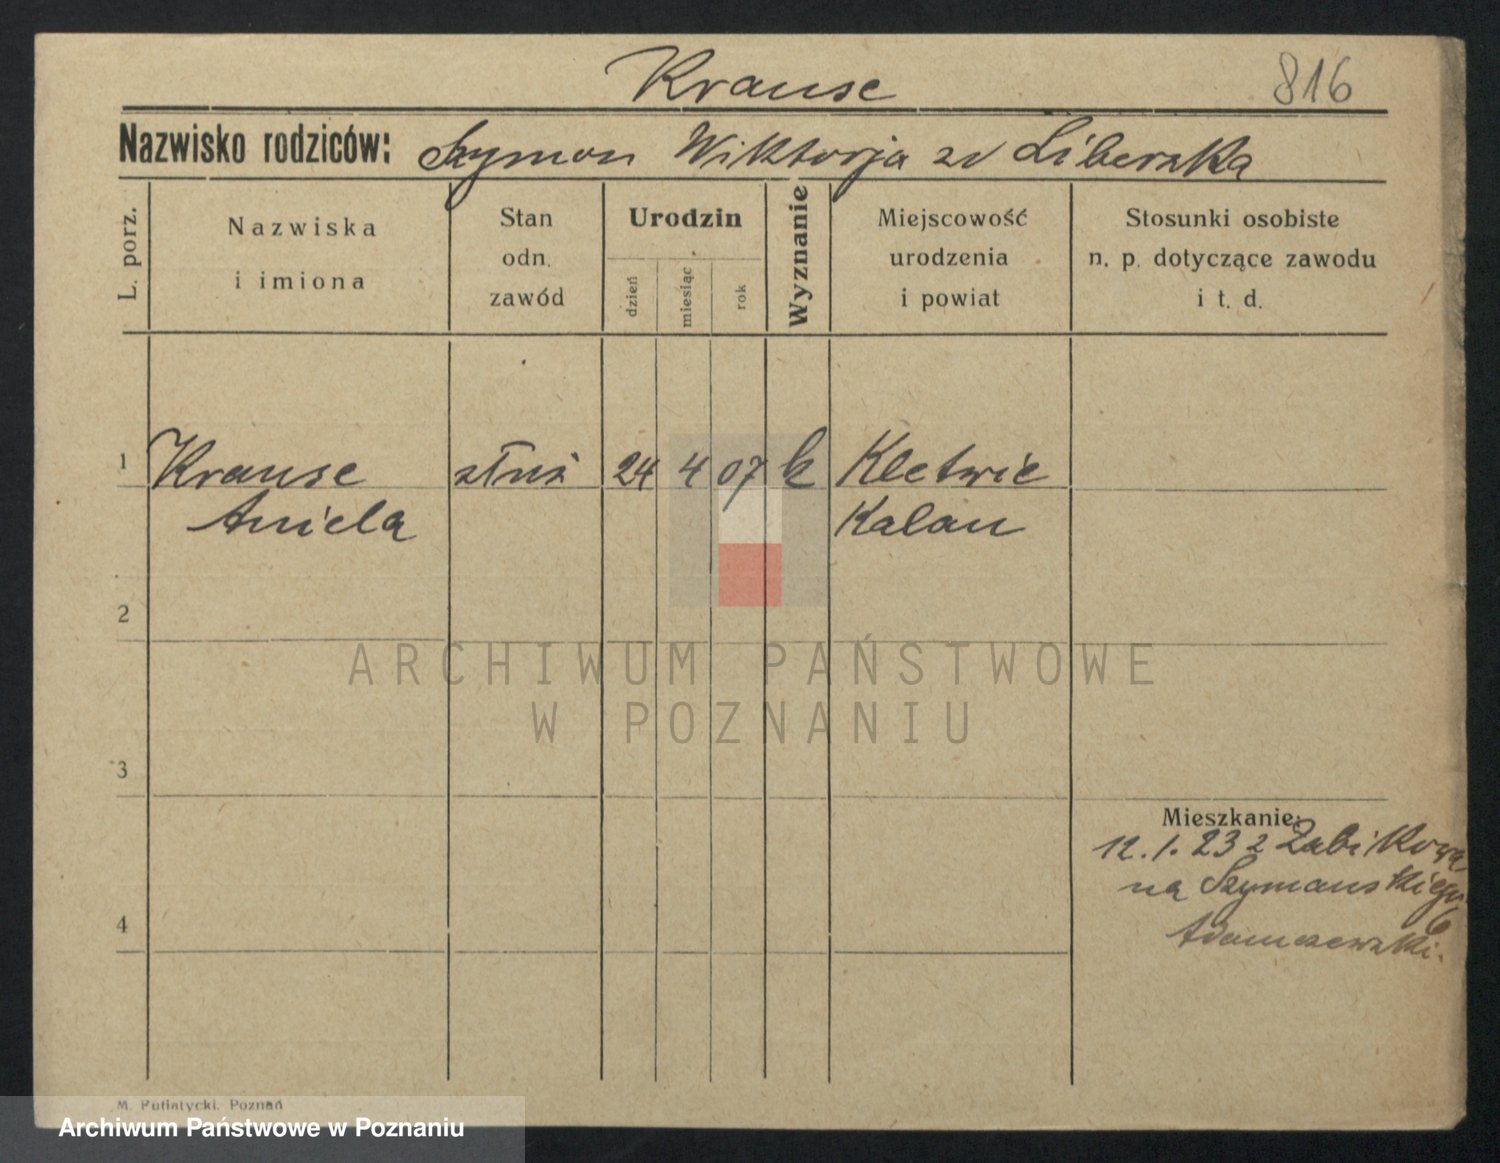 Krause
816
Nazwisko rodziców: Szymon Wiktorja zd Liberska
L. porz.
Nazwiska i imiona
Stan odn. zawód
Urodzin
dzień
miesiąc
rok
Wyznanie
Miejscowość urodzenia i powiat
Stosunki osobiste n. p. dotyczące zawodu i t. d.
1 Krause służ 24 4 07 k Kletwic
Aniela Kalau
2
3
4
Mieszkanie:
12. 1. 23 z Żabikowa
na Szymanskiego 6
Adamczewski.
ARCHIWUM PAŃSTWOWE
W POZNANIU
M. Putiatycki, Poznań
Archiwum Państwowe w Poznaniu